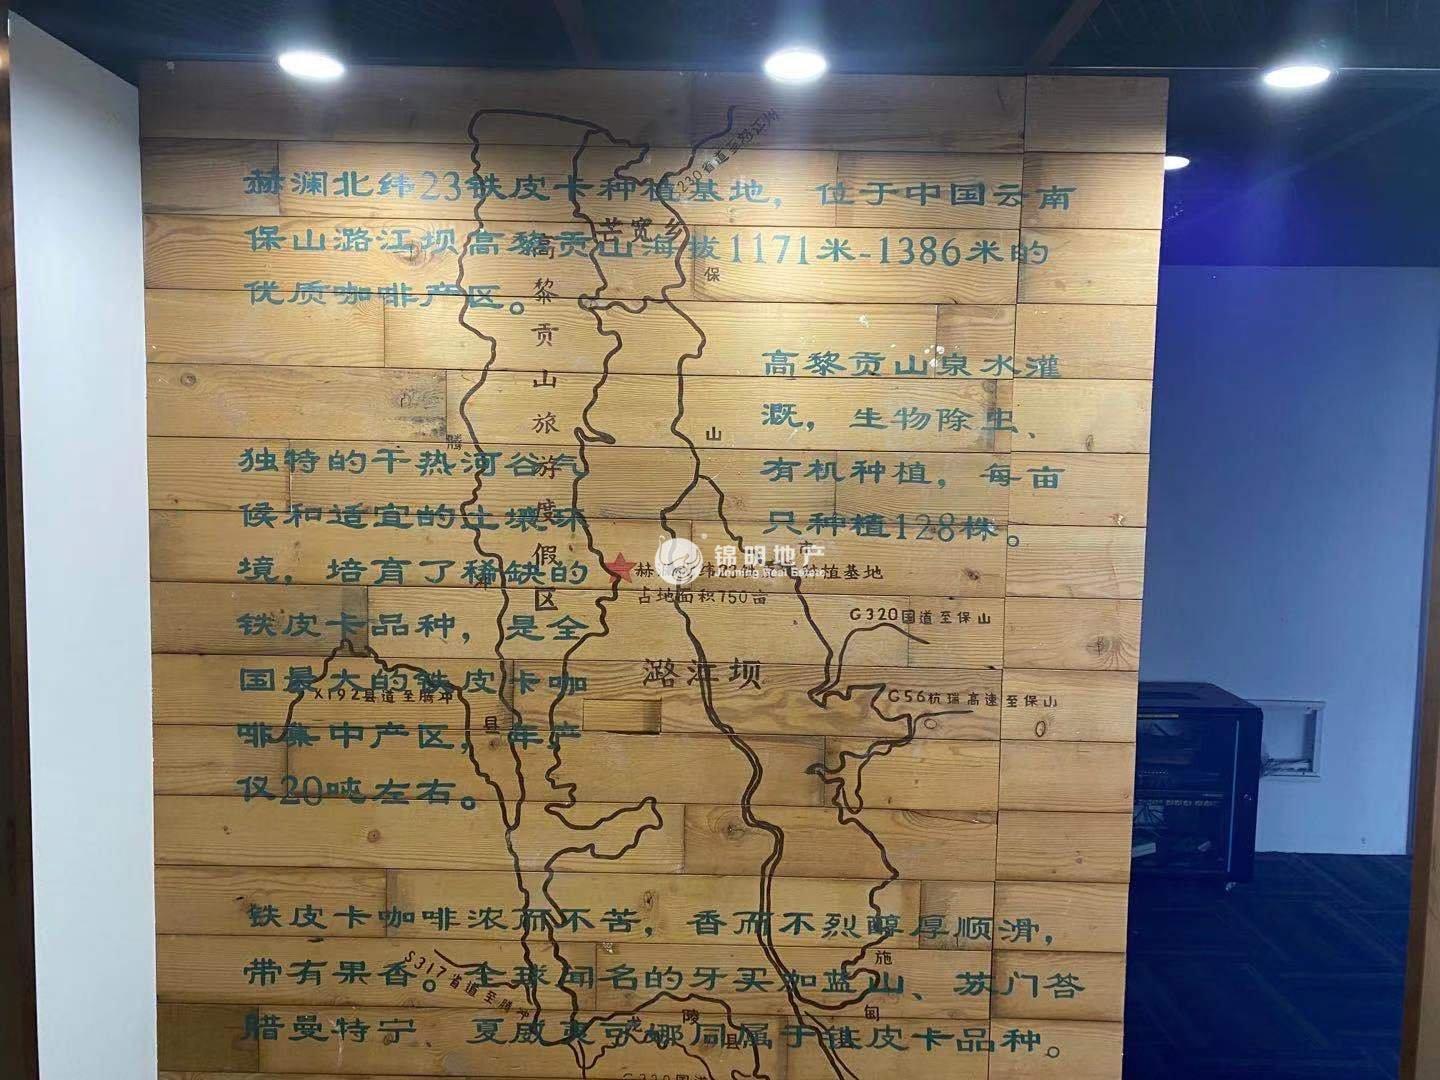 230省道至怒江州
赫澜北纬23铁皮卡种植基地，位于中国云南
芒宽乡
保山潞江坝高黎贡山海拔1171米-1386米的
保
优质咖啡产区。
高黎贡山旅游度假区
高黎贡山泉水灌
溉，生物除虫、
山
腾
独特的干热河谷气
有机种植，每亩
候和适宜的土壤环
只种植128株。
市
锦明地产
Jinming Real Estate
境，培育了稀缺的
植基地
占地面积750亩
铁皮卡品种，是全
G320国道至保山
潞江坝
国最大的铁皮卡咖
X192县道至腾冲
G56杭瑞高速至保山
冲
县
啡集中产区，年产
仅20吨左右。
铁皮卡咖啡浓而不苦，香而不烈醇厚顺滑，
施
带有果香。全球闻名的牙买加蓝山、苏门答
S317省道至腾冲
甸
龙陵县
腊曼特宁、夏威夷可娜同属于铁皮卡品种。
县